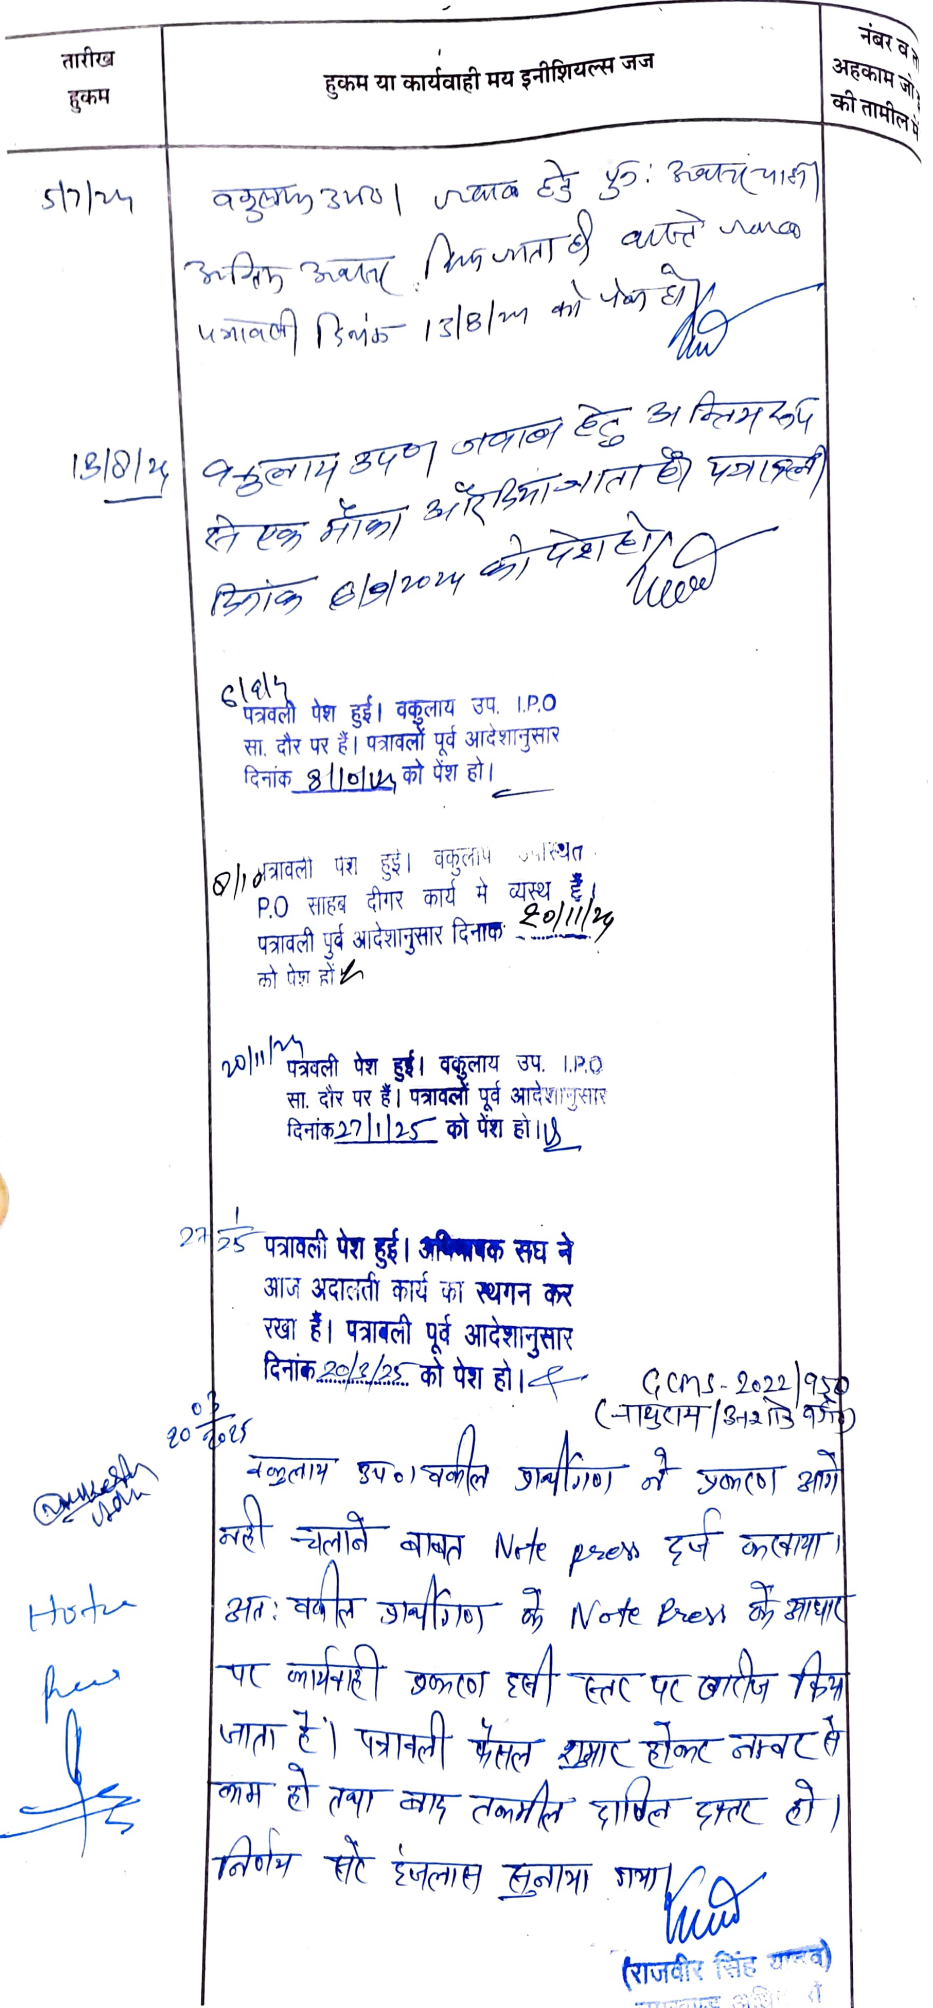 तारीख
हुकम
हुकम या कार्यवाही मय इनीशियल्स जज
नंबर व
अहकाम जो
की तामील में
5/7/24
वकुलाय उपण। जवाब हेतु पुन: अवसर चाहा।
अन्तिम अवसर दिया जाता है। वास्ते जवाब
पत्रावली दिनांक 13/8/24 को पेश हो।
13/8/24
वकुलाय उपण जवाब हेतु अन्तिम रूप
से एक मौका और दिया जाता है। पत्रावली
दिनांक 6/9/2024 को पेश हो।
6/9/24
पत्रवली पेश हुई। वकुलाय उप. I.P.O
सा. दौर पर हैं। पत्रावलों पूर्व आदेशानुसार
दिनांक 8/10/24 को पेंश हो।
8/10
पत्रावली पेश हुई। वकुलाय उपस्थित
P.O साहब दीगर कार्य मे व्यस्थ हैं।
पत्रावली पुर्व आदेशानुसार दिनाक 20/11/24
को पेश हों
20/11/24
पत्रवली पेश हुई। वकुलाय उप. I.P.O
सा. दौर पर हैं। पत्रावलों पूर्व आदेशानुसार
दिनांक 27/1/25 को पेंश हो।
27/1/25
पत्रावली पेश हुई। अभिभाषक संघ ने
आज अदालती कार्य का स्थगन कर
रखा हैं। पत्राबली पूर्व आदेशानुसार
दिनांक 20/3/25 को पेश हो।
GCMS-2022/950
(नाथुराम/
20/03/2025
वकुलाय उप०। वकील प्रार्थीगण ने प्रकरण आगे
नही चलाने बाबत Note press दर्ज करवाया।
अत: वकील प्रार्थीगण के Note Press के आधार
पर कार्यवाही प्रकरण इसी स्तर पर खारीज किया
जाता है। पत्रावली फैसल शुमार होकर नम्बर से
कम हो तथा बाद तकमील दाखिल दफ्तर हो।
निर्णय सरे इंजलास सुनाया गया।
(राजवीर सिंह यादव)